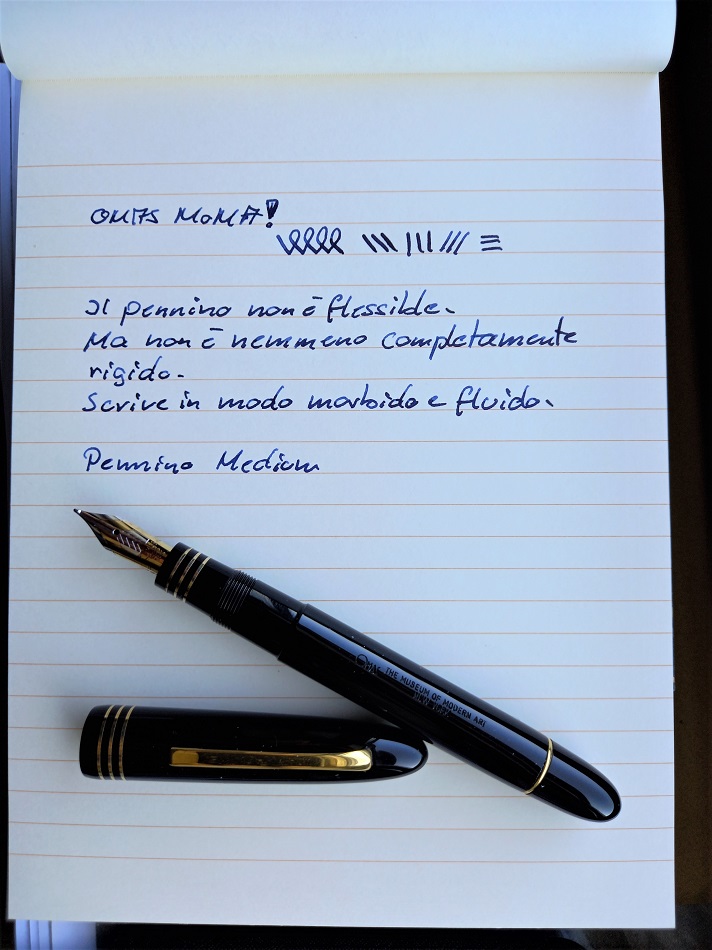 OMAS MoMA!
Il pennino non è flessibile.
Ma non è nemmeno completamente
rigido.
Scrive in modo morbido e fluido.
Pennino Medium
OMAS THE MUSEUM OF MODERN ART